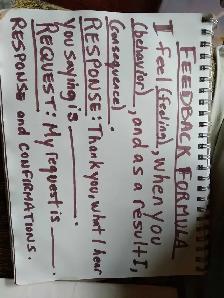 FEEDBACK FORMULA
I feel (feeling), when you
(behavior), and as a result I,
(consequence).
RESPONSE: Thank you, what I hear
you saying is ______.
REQUEST: My request is ____.
RESPONSE and CONFIRMATIONS.